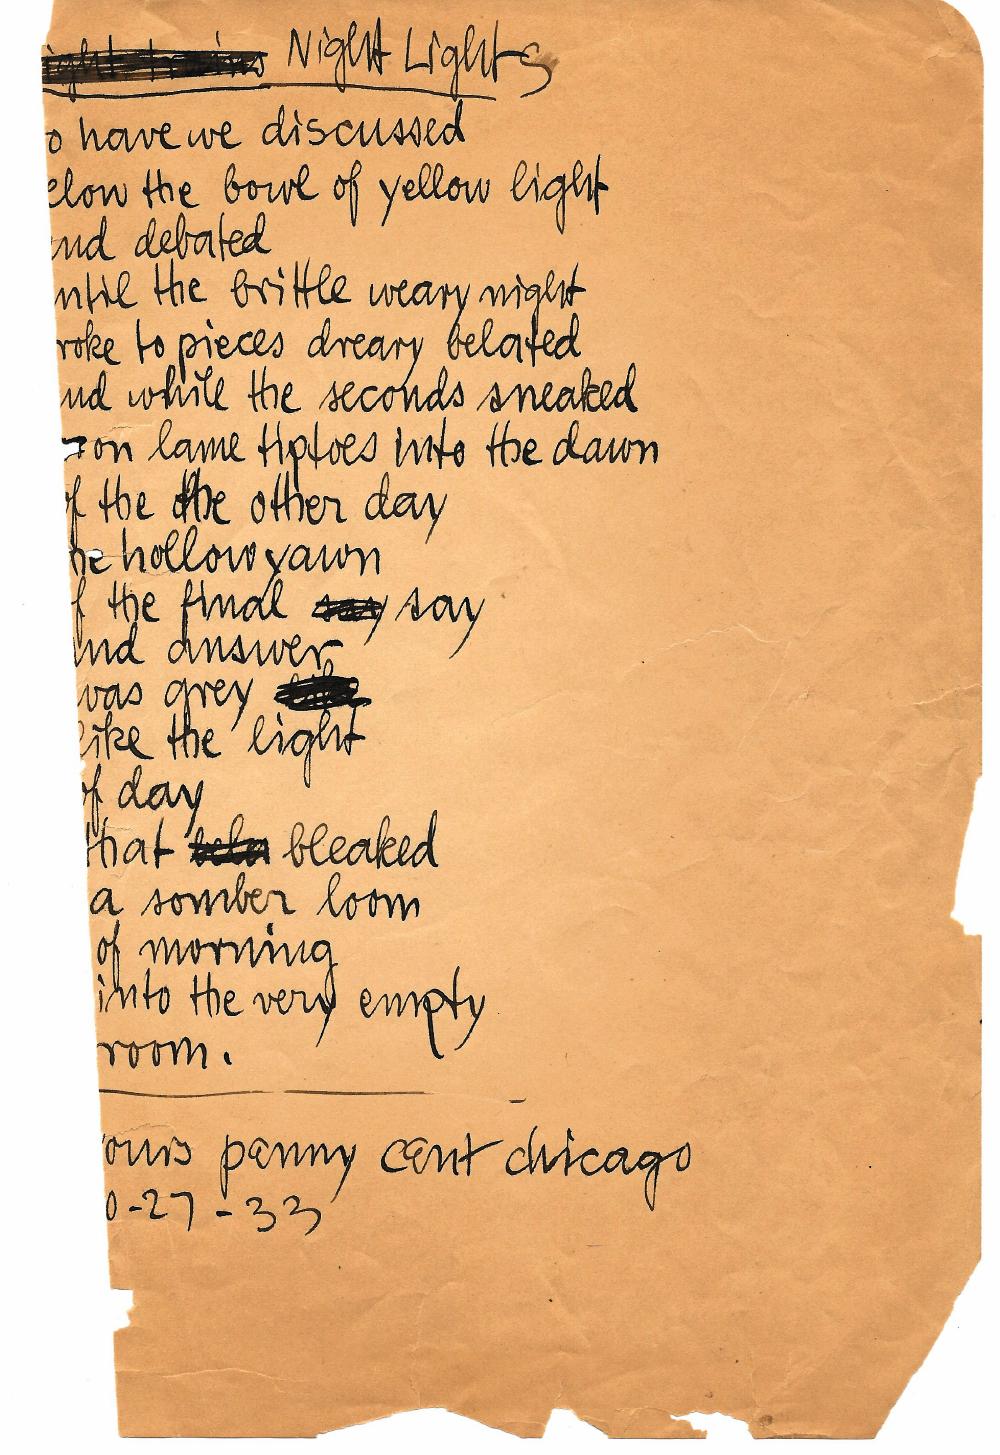 Night Lights
o have we discussed
elow the bowl of yellow light
nd debated
ntil the brittle weary night
roke to pieces dreary belated
nd while the seconds sneaked
on lame tiptoes into the dawn
f the the other day
he hollow yawn
f the final say say
nd answer
was grey
like the light
of day
that bela bleaked
a somber loom
of morning
into the very empty
room.
ours penny cent chicago
0-27-33